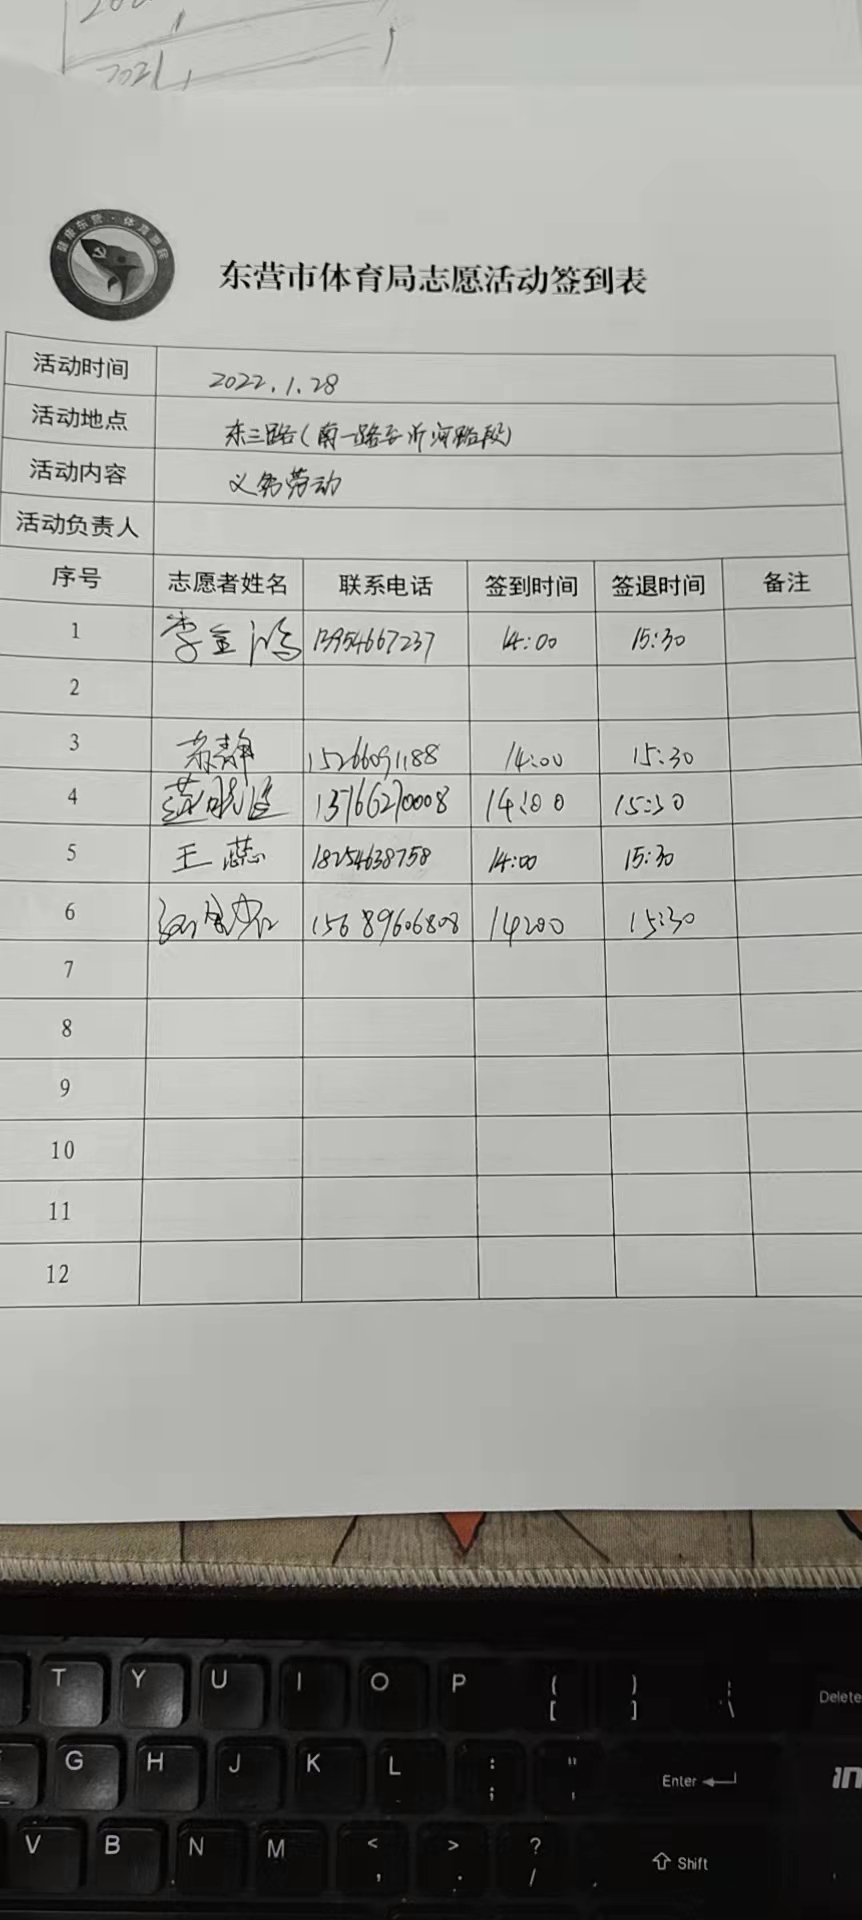 2021
健康东营·体育惠民
东营市体育局志愿活动签到表
活动时间 2022.1.28
活动地点 东三路(南一路至沂河路段)
活动内容 义务劳动
活动负责人
序号 志愿者姓名 联系电话 签到时间 签退时间 备注
1 李金鸿 13954667237 14:00 15:30
2
3 苏静 15266091188 14:00 15:30
4 14:00 15:30
5 王蕊 18254638758 14:00 15:30
6 15689606808 14:00 15:30
7
8
9
10
11
12
T Y U I O P { [ } ] | \ Delete
G H J K L : ; " ' Enter
V B N M < , > . ? / Shift